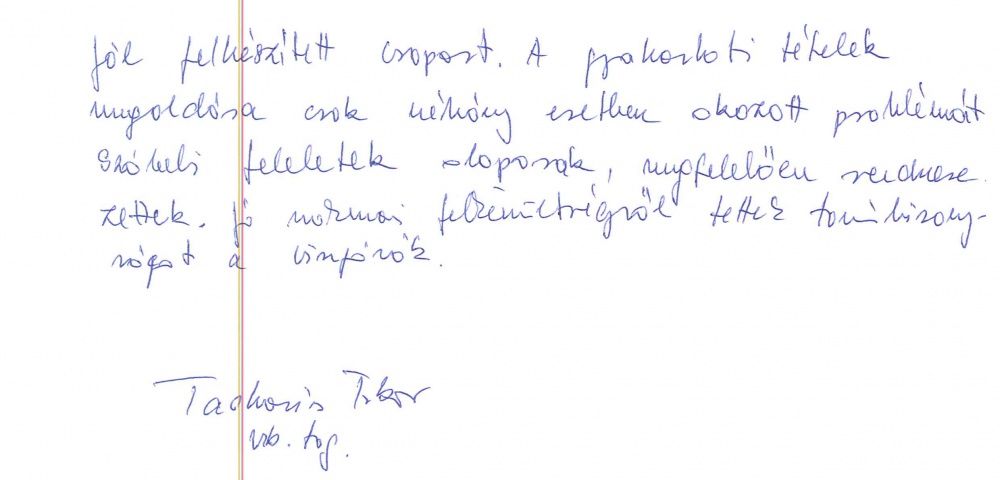 Jól felkészített csoport. A gyakorlati tételek
megoldása csak néhány esetben okozott problémát
szóbeli feleletek alaposak, megfelelően rendsze-
zettek. Jó szakmai felkészültségről tettek tanúbizony-
ságot a vizsgázók.
Tibor
vb. tag.